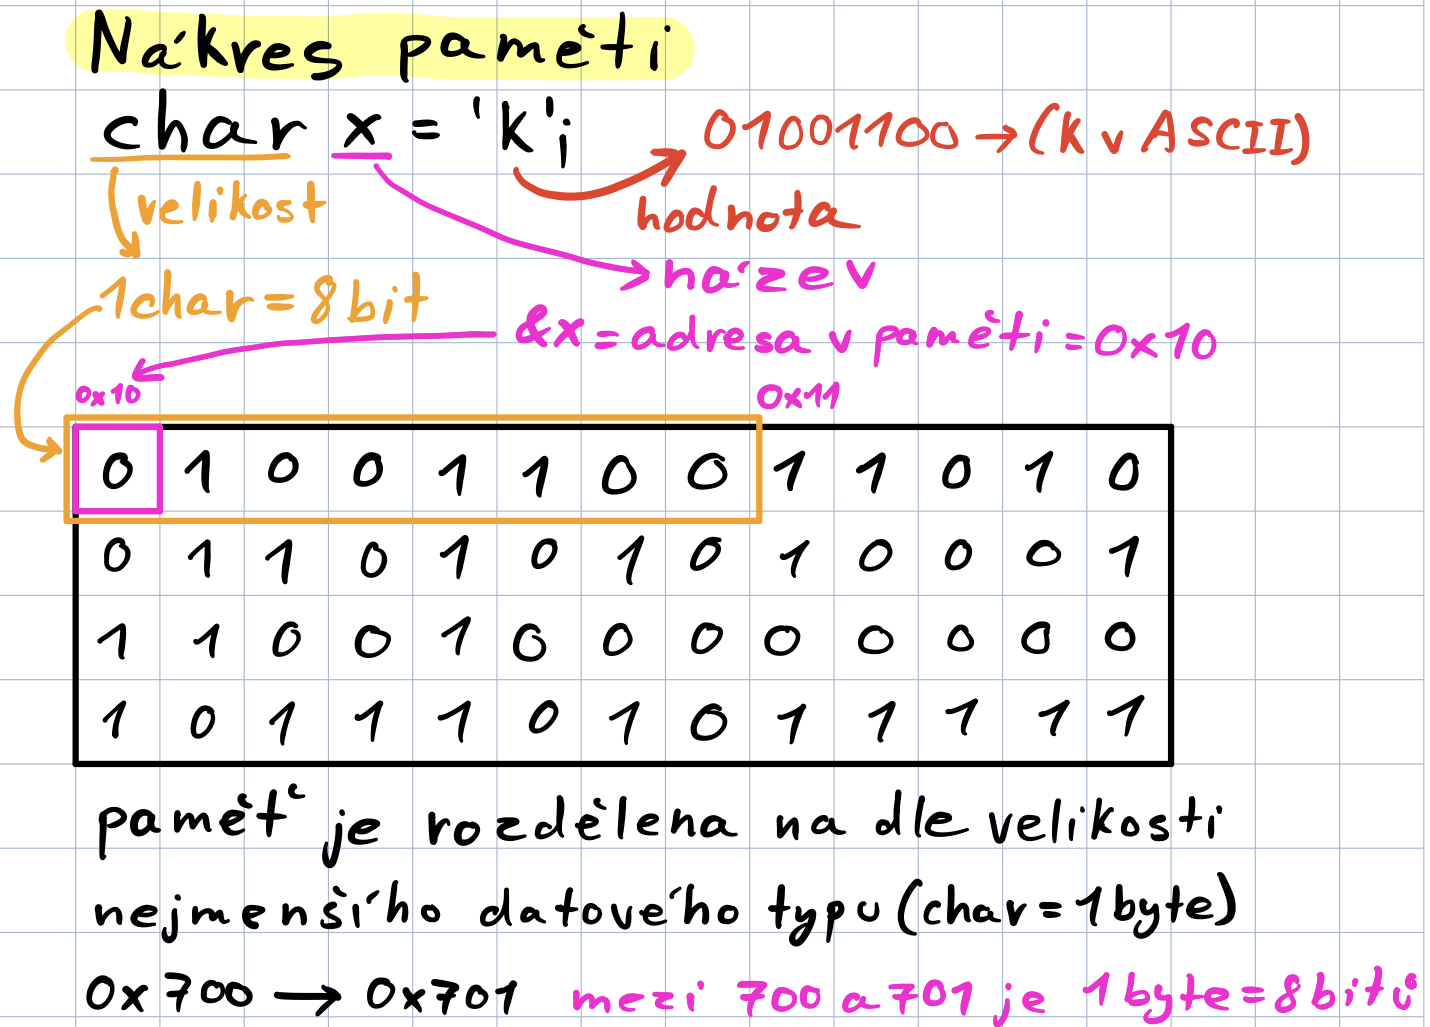 Nákres paměti
char x = 'K';
01001100 → (K v ASCII)
velikost
hodnota
název
1char = 8bit
&x = adresa v paměti = 0x10
0x10
0x11
0 1 0 0 1 1 0 0 1 1 0 1 0
0 1 1 0 1 0 1 0 1 0 0 0 1
1 1 0 0 1 0 0 0 0 0 0 0 0
1 0 1 1 1 0 1 0 1 1 1 1 1
paměť je rozdělena na dle velikosti
nejmenšího datového typu (char = 1byte)
0x700 → 0x701 mezi 700 a 701 je 1byte = 8bitů